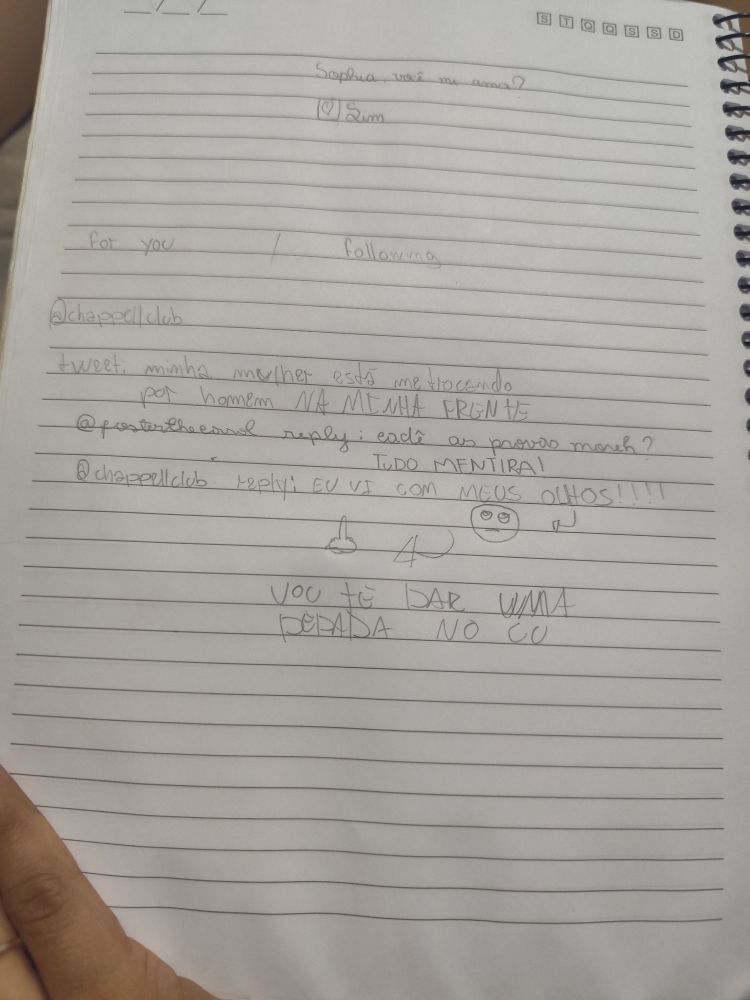 __/__/__
S T Q Q S S D
Sophia, você me ama?
Sim
for you / following
@chappellclub
tweet: minha mulher está me trocando
por homem NA MINHA FRENTE
reply: cadê as provas moreh?
TUDO MENTIRA!
@chappellclub reply: EU VI COM MEUS OLHOS!!!!
VOU TE DAR UMA
DEDADA NO CU